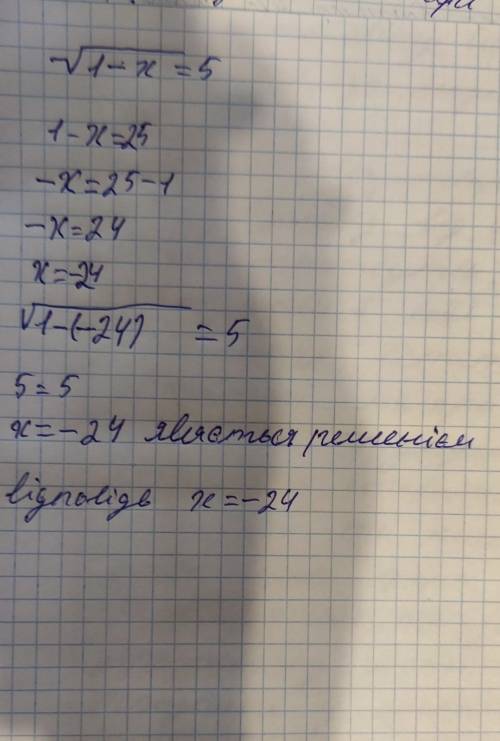 √1-x = 5
1-x=25
-x=25-1
-x=24
x=-24
√1-(-24) = 5
5=5
x=-24 являється решенієм
відповідь x=-24